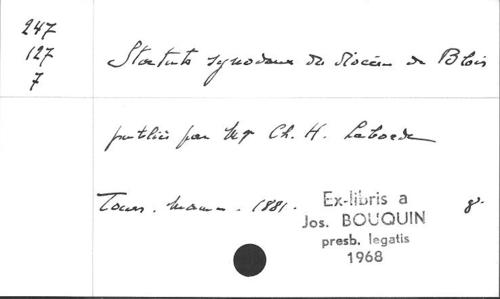 247
127
7
Statuts synodaux du diocèse de Blois
publiés par Mgr Ch. H. Laborde
Tours. Mame. 1881. 8°.
Ex-libris a
Jos. BOUQUIN
presb. legatis
1968